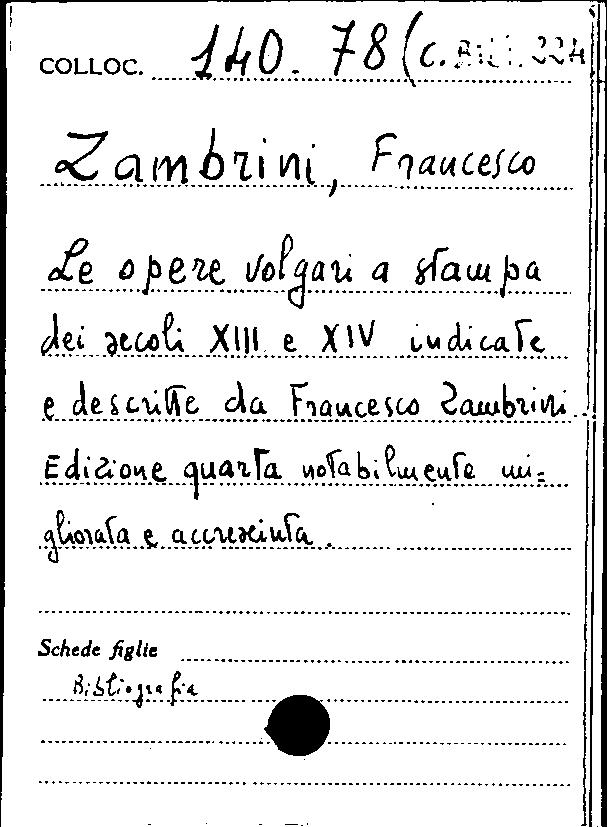 COLLOC. 140. 78 (C. Bibl. 224
Zambrini, Francesco
Le opere volgari a stampa
dei secoli XIII e XIV indicate
e descritte da Francesco Zambrini.
Edizione quarta notabilmente mi=
gliorata e accresciuta.
Schede figlie
Bibliografia